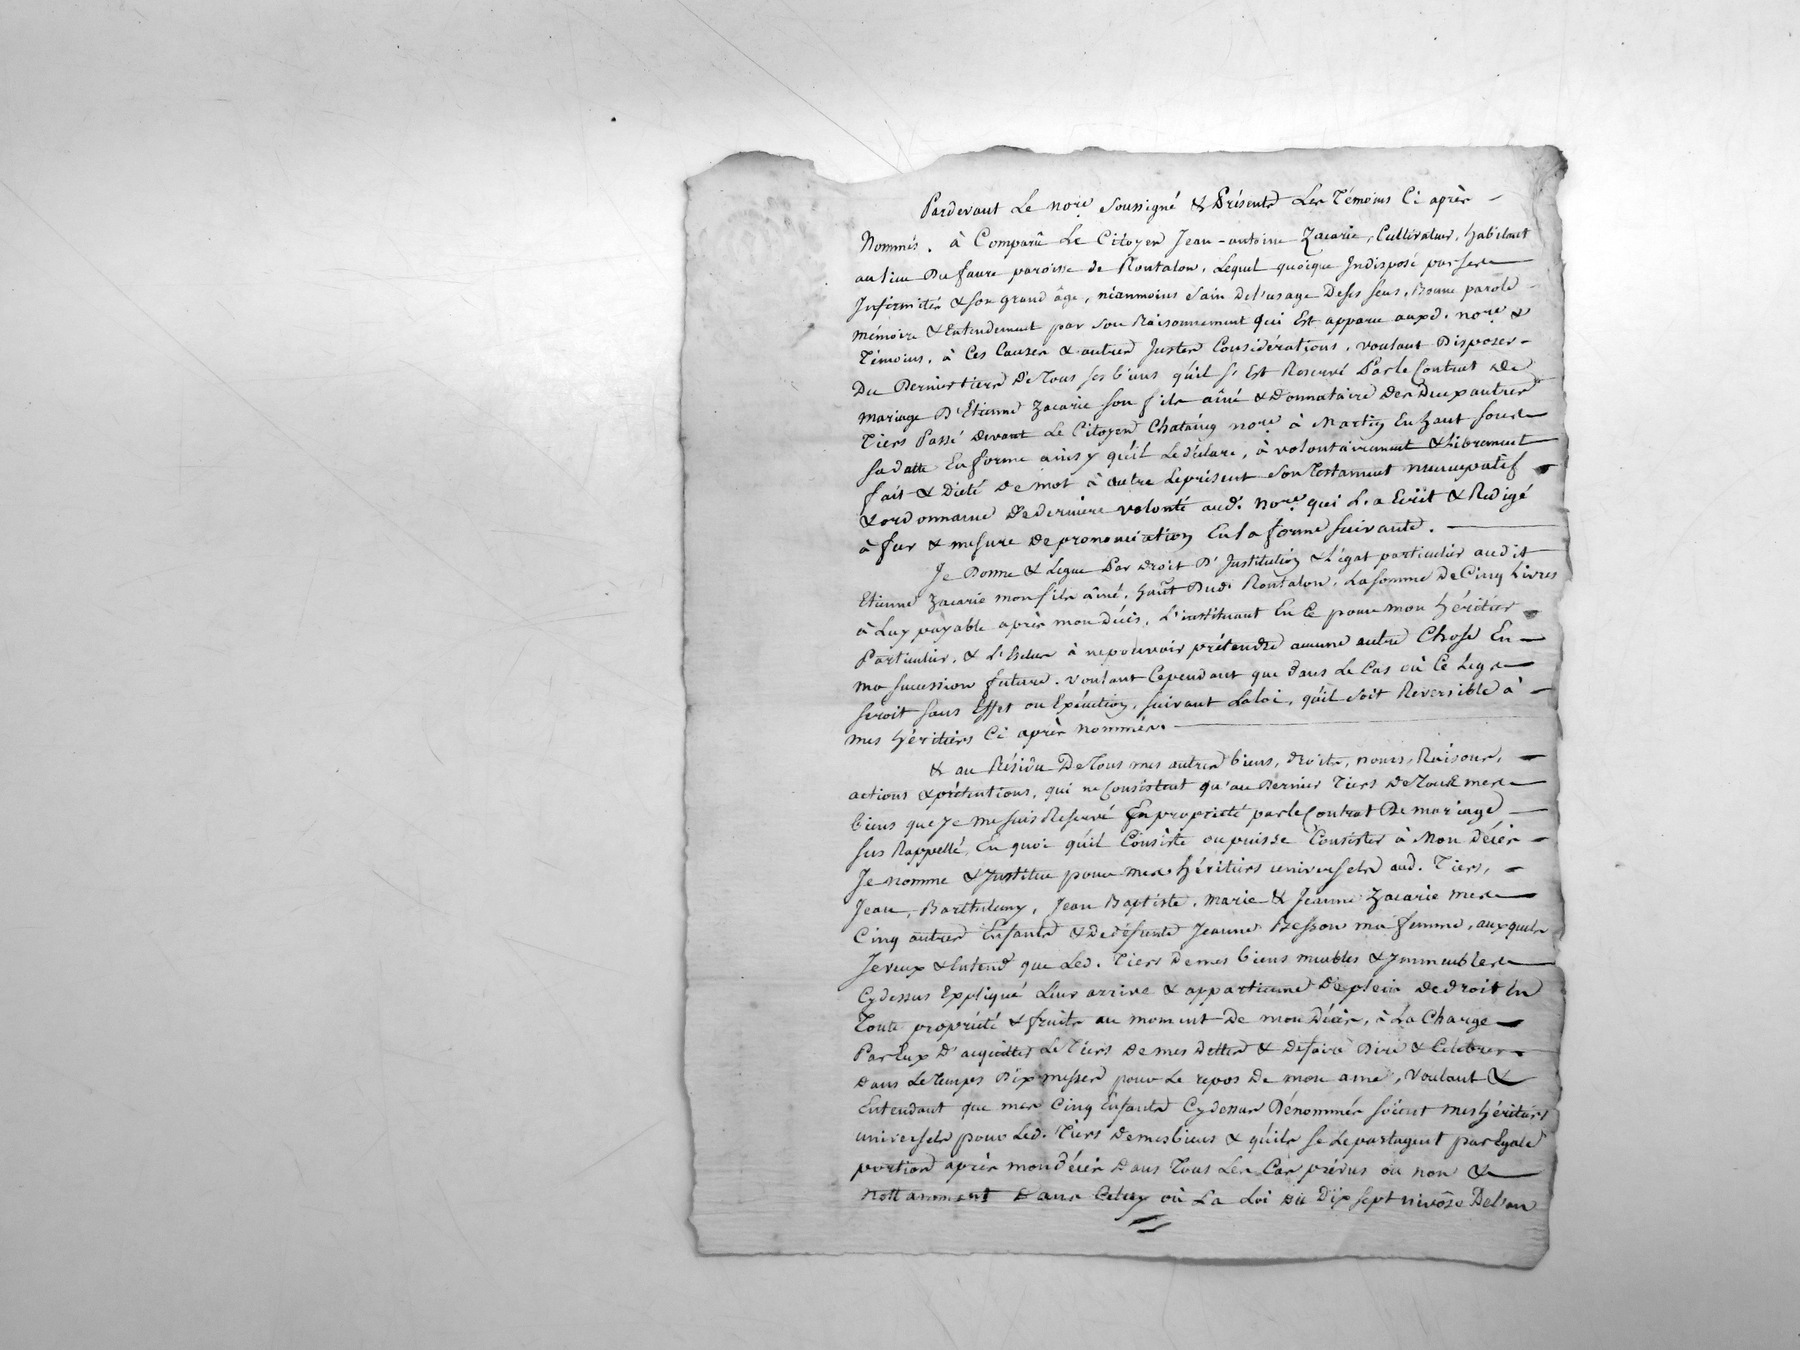 Pardevant Le no.re Soussigné & Présents Les Témoins Ci après -
Nommés. à Comparû Le Citoyen Jean-antoine Zacarie, Cultivateur, habitant
au lieu Du faure paroisse de Rontalon, Lequel quoique Indisposé par ses
Infirmités & son grand âge, néanmoins Sain De l'usage De ses sens, Bonne parole
mémoire & Entendement par Son Raisonnement qui Est apparu auxd. no.re &
Témoins, à Ces Causes & autres Justes Considérations, voulant Disposer -
Du Dernier tiers De Tous ses biens qu'il s'Est Reservé Par le Contrat de
mariage D'Etienne Zacarie son fils aîné & Donnataire Des Deux autres
Tiers Passé devant Le Citoyen Chataing no.re à Martin En haut sous
sa datte En forme ainsy qu'il Le déclare, à volontairement & Librement
fait & Dicté De mot à autre Le présent Son Testament nuncupatif
& ordonnance De derniere volonté aud. No.re qui L'a Ecrit & Redigé
à fur & mesure De prononciation En la forme suivante.
Je Donne & Legue Par Droit D'Institution & Légat particulier audit
Etienne Zacarie mon fils aîné, hant Dud. Rontalon, La somme De Cinq Livres
à Luy payable après mon décès, L'instituant En Ce pour mon héritier
Particulier, & L'Exclus à ne pouvoir prétendre aucune autre Chose En -
ma succession future. voulant Cependant que dans Le Cas où Ce Legs
seroit sans Effet ou Exécution, suivant La loi, qu'il soit Reversible à -
mes héritiers Ci après nommés.
& au Résidu De Tous mes autres biens, droits, noms, Raisons, -
actions & prétentions, qui ne Consistent qu'au Dernier Tiers De Tous mes
biens que Je me suis Reservé En propriété par le Contrat De mariage -
sus Rappellé, En quoi qu'il Consiste ou puisse Consister à Mon décès -
Je nomme & Institue pour mes héritiers universels aud. Tiers, -
Jean, Barthelemy, Jean Baptiste, marie & Jeanne Zacarie mes
Cinq autres Enfants & De défunte Jeanne Besson ma femme, auxquels
Je veux & Entend que Led. Tiers De mes biens meubles & Immeubles
Cydessus Expliqué Leur arrive & appartienne De plein de droit En
Toute propriété & fruits au moment De mon Décès, à La Charge
Par Eux D'acquitter Le Tiers De mes Dettes & De faire Dire & Celebrer
Dans Le Temps Dix messes pour Le repos De mon ame, Voulant &
Entendant que mes Cinq Enfants Cydessus Dénommés soient mes héritiers
universels pour Led. Tiers De mes biens & qu'ils se Le partagent par Egale
portion après mon décès Dans Tous Les Cas prévus ou non &
nottamment Dans Celuy où La Loi Du Dix sept nivôse De l'an